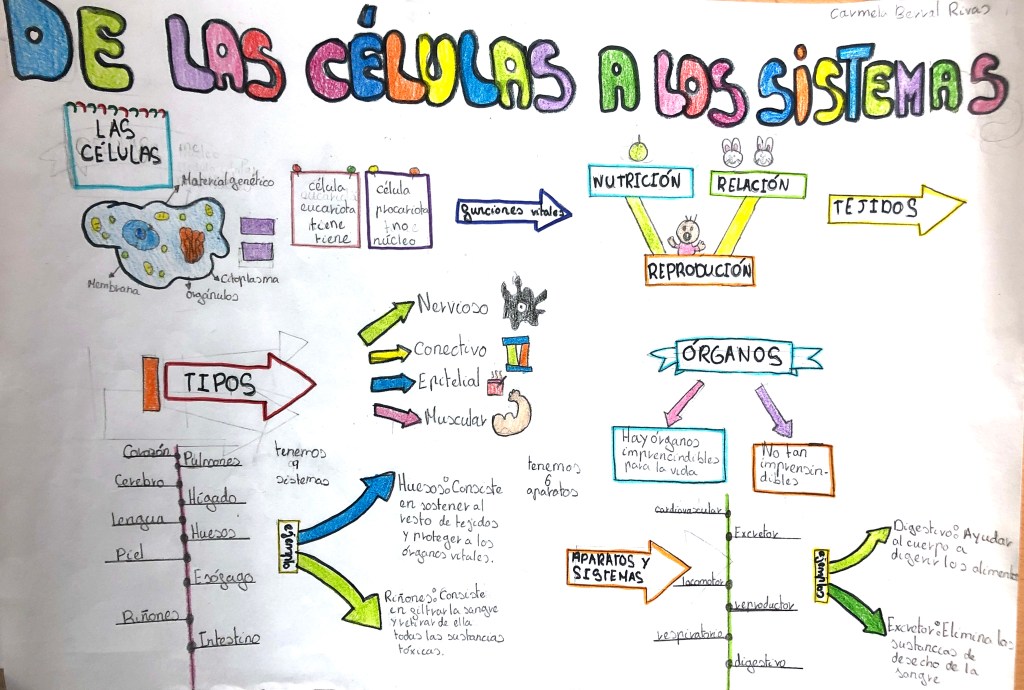 Carmela Berral Rivas
DE LAS CÉLULAS A LOS SISTEMAS
LAS
CÉLULAS
Material genético
Membrana
orgánulos
Citoplasma
célula
eucariota
tiene
tiene
célula
procariota
no
núcleo
funciones vitales
NUTRICIÓN
RELACIÓN
REPRODUCIÓN
TEJIDOS
TIPOS
Nervioso
Conectivo
Epitelial
Muscular
ÓRGANOS
Hay órganos
imprencindibles
para la vida
No tan
imprensin-
dibles
Corazón
Pulmones
Cerebro
Hígado
Lengua
Huesos
Piel
Esófago
Riñones
Intestino
tenemos
9
sistemas
ejemplo
Huesos: Consiste
en sostener al
resto de tejidos
y proteger a los
órganos vitales.
Riñones: Consiste
en filtrar la sangre
y retirar de ella
todas las sustancias
tóxicas.
tenemos
6
aparatos
APARATOS Y
SISTEMAS
cardiovascular
Excretor
locomotor
reproductor
respiratorio
digestivo
ejemplos
Digestivo: Ayudar
al cuerpo a
digerir los alimentos
Excretor: Elimina las
sustancias de
desecho de la
sangre